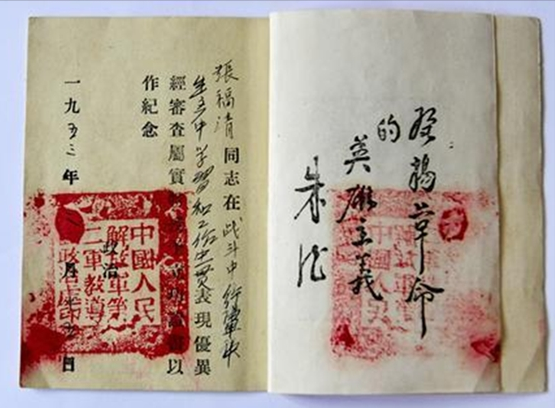 發揚革命
的
英雄主義
朱德
張福清同志在战斗中行軍中
生产中学習和工作中一贯表現優異
經審查屬實以
作紀念
一九五三年月日
中國人民
解放軍第
三軍教導
政治